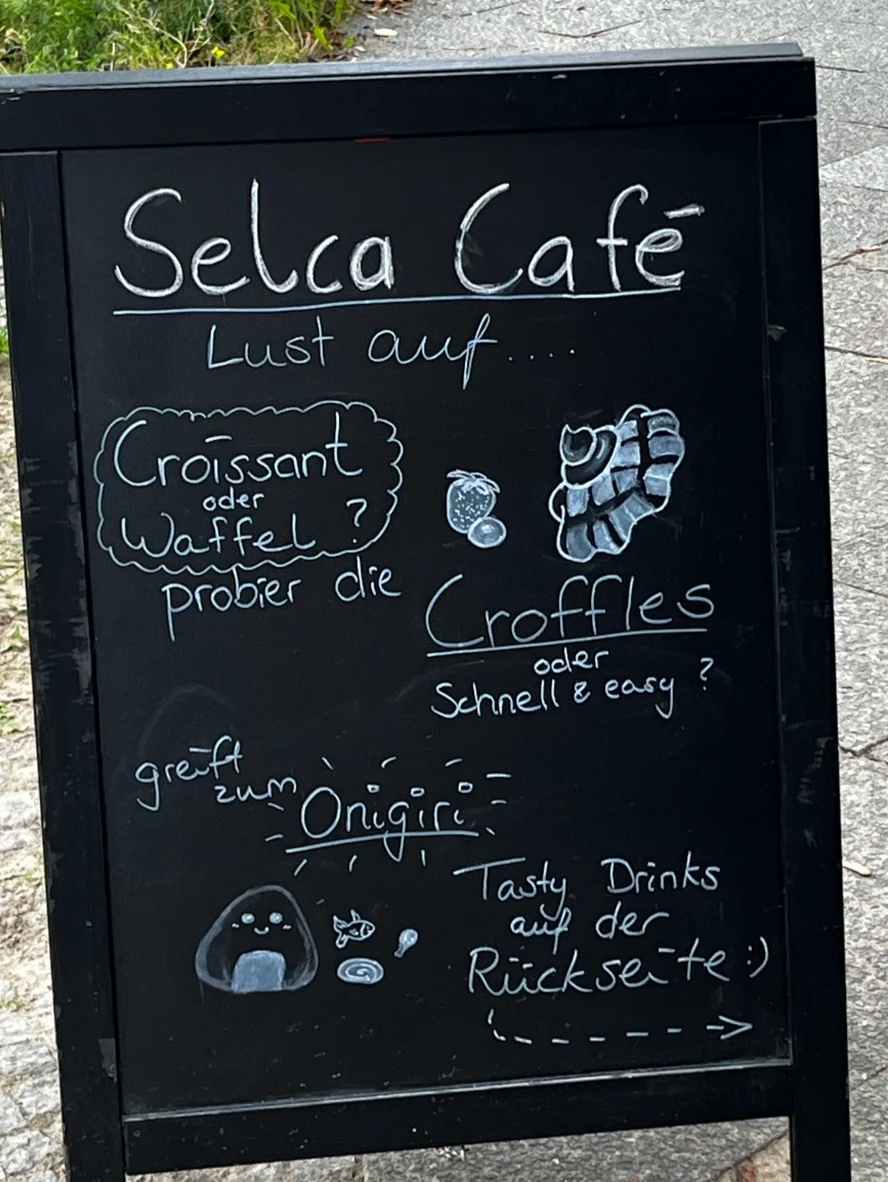 Selca Café
Lust auf....
Croissant
oder
Waffel ?
probier die
Croffles
oder
Schnell & easy ?
greift
zum
Onigiri
Tasty Drinks
auf der
Rückseite :)